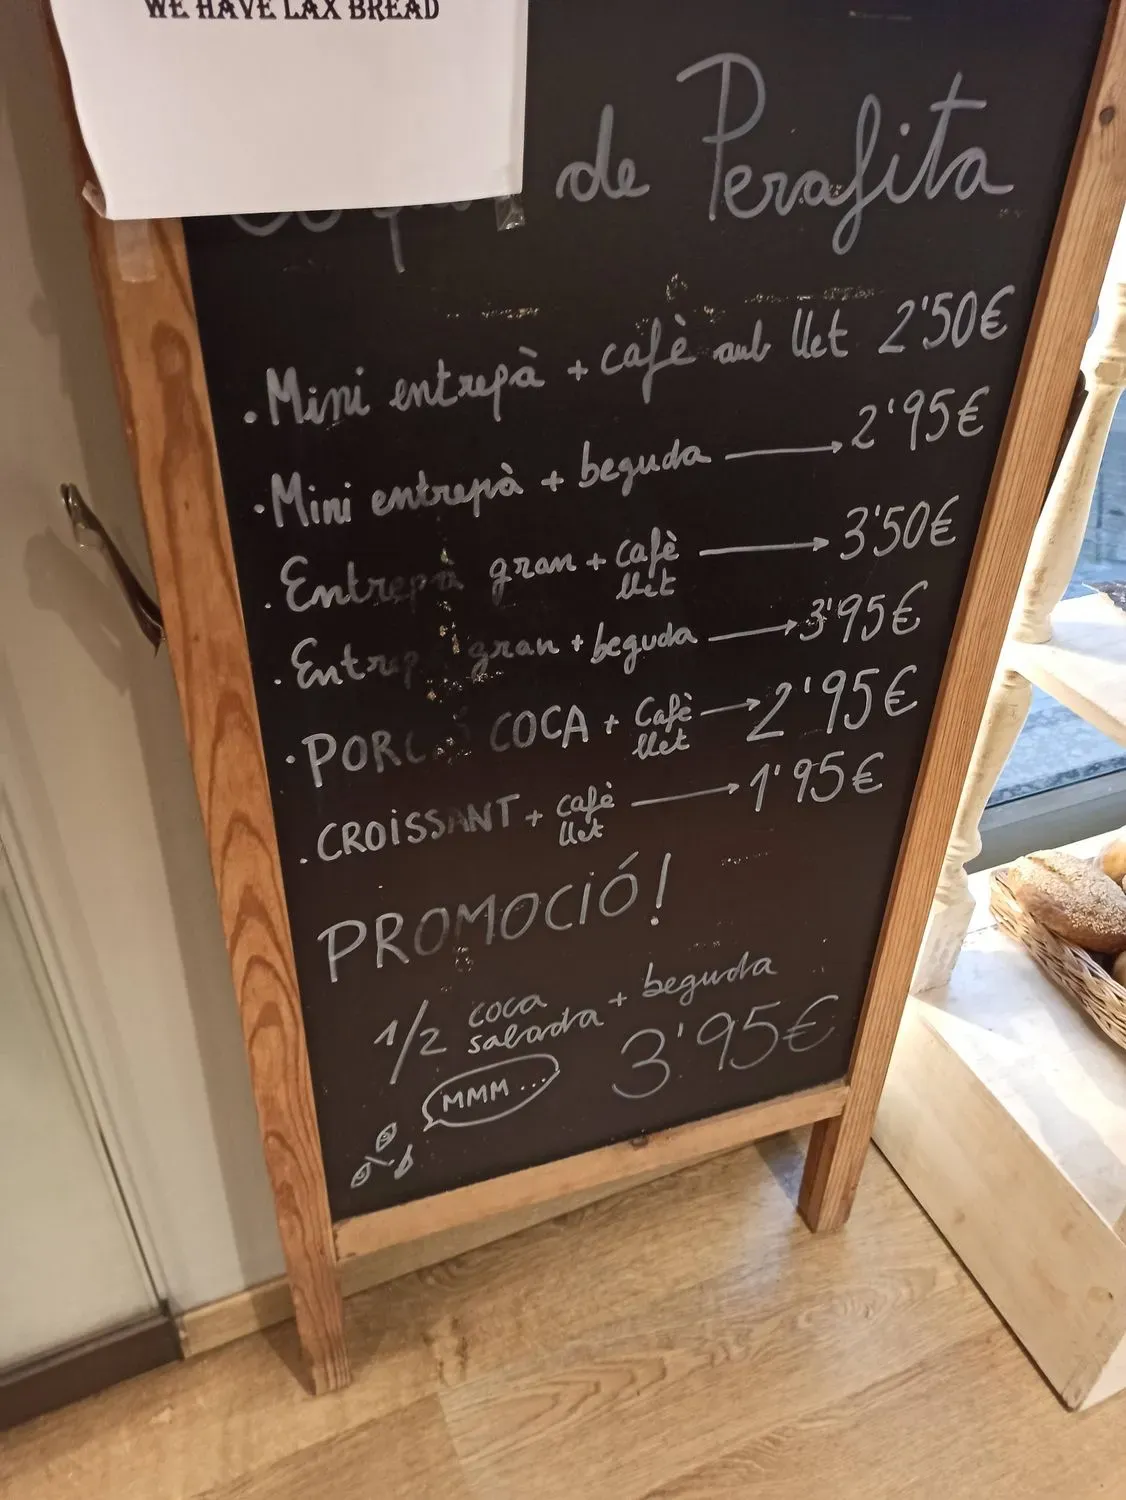 WE HAVE LAX BREAD
de Perafita
• Mini entrepà + cafè amb llet 2'50€
• Mini entrepà + beguda → 2'95€
• Entrepà gran + cafè llet → 3'50€
• Entrep gran + beguda → 3'95€
• COCA + Cafè llet → 2'95€
• CROISSANT + cafè llet → 1'95€
PROMOCIÓ!
1/2 coca salada + beguda
3'95€
MMM...